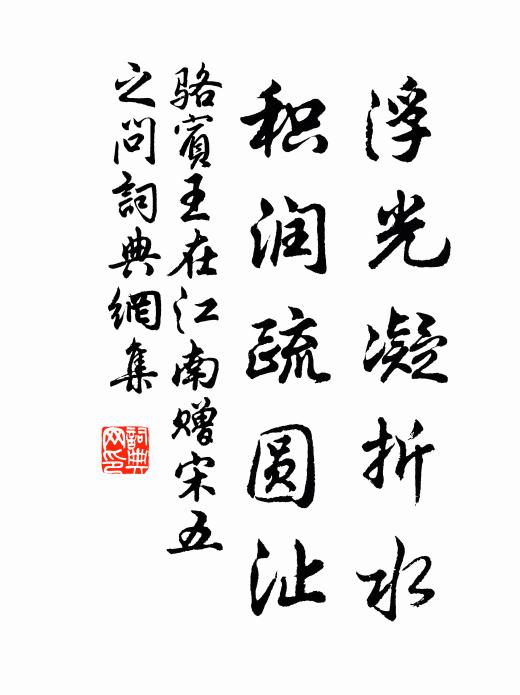 浮光凝折水
积润疏圆沚
骆賓王在江南赠宋五
之问詞典網集
詞典
网印